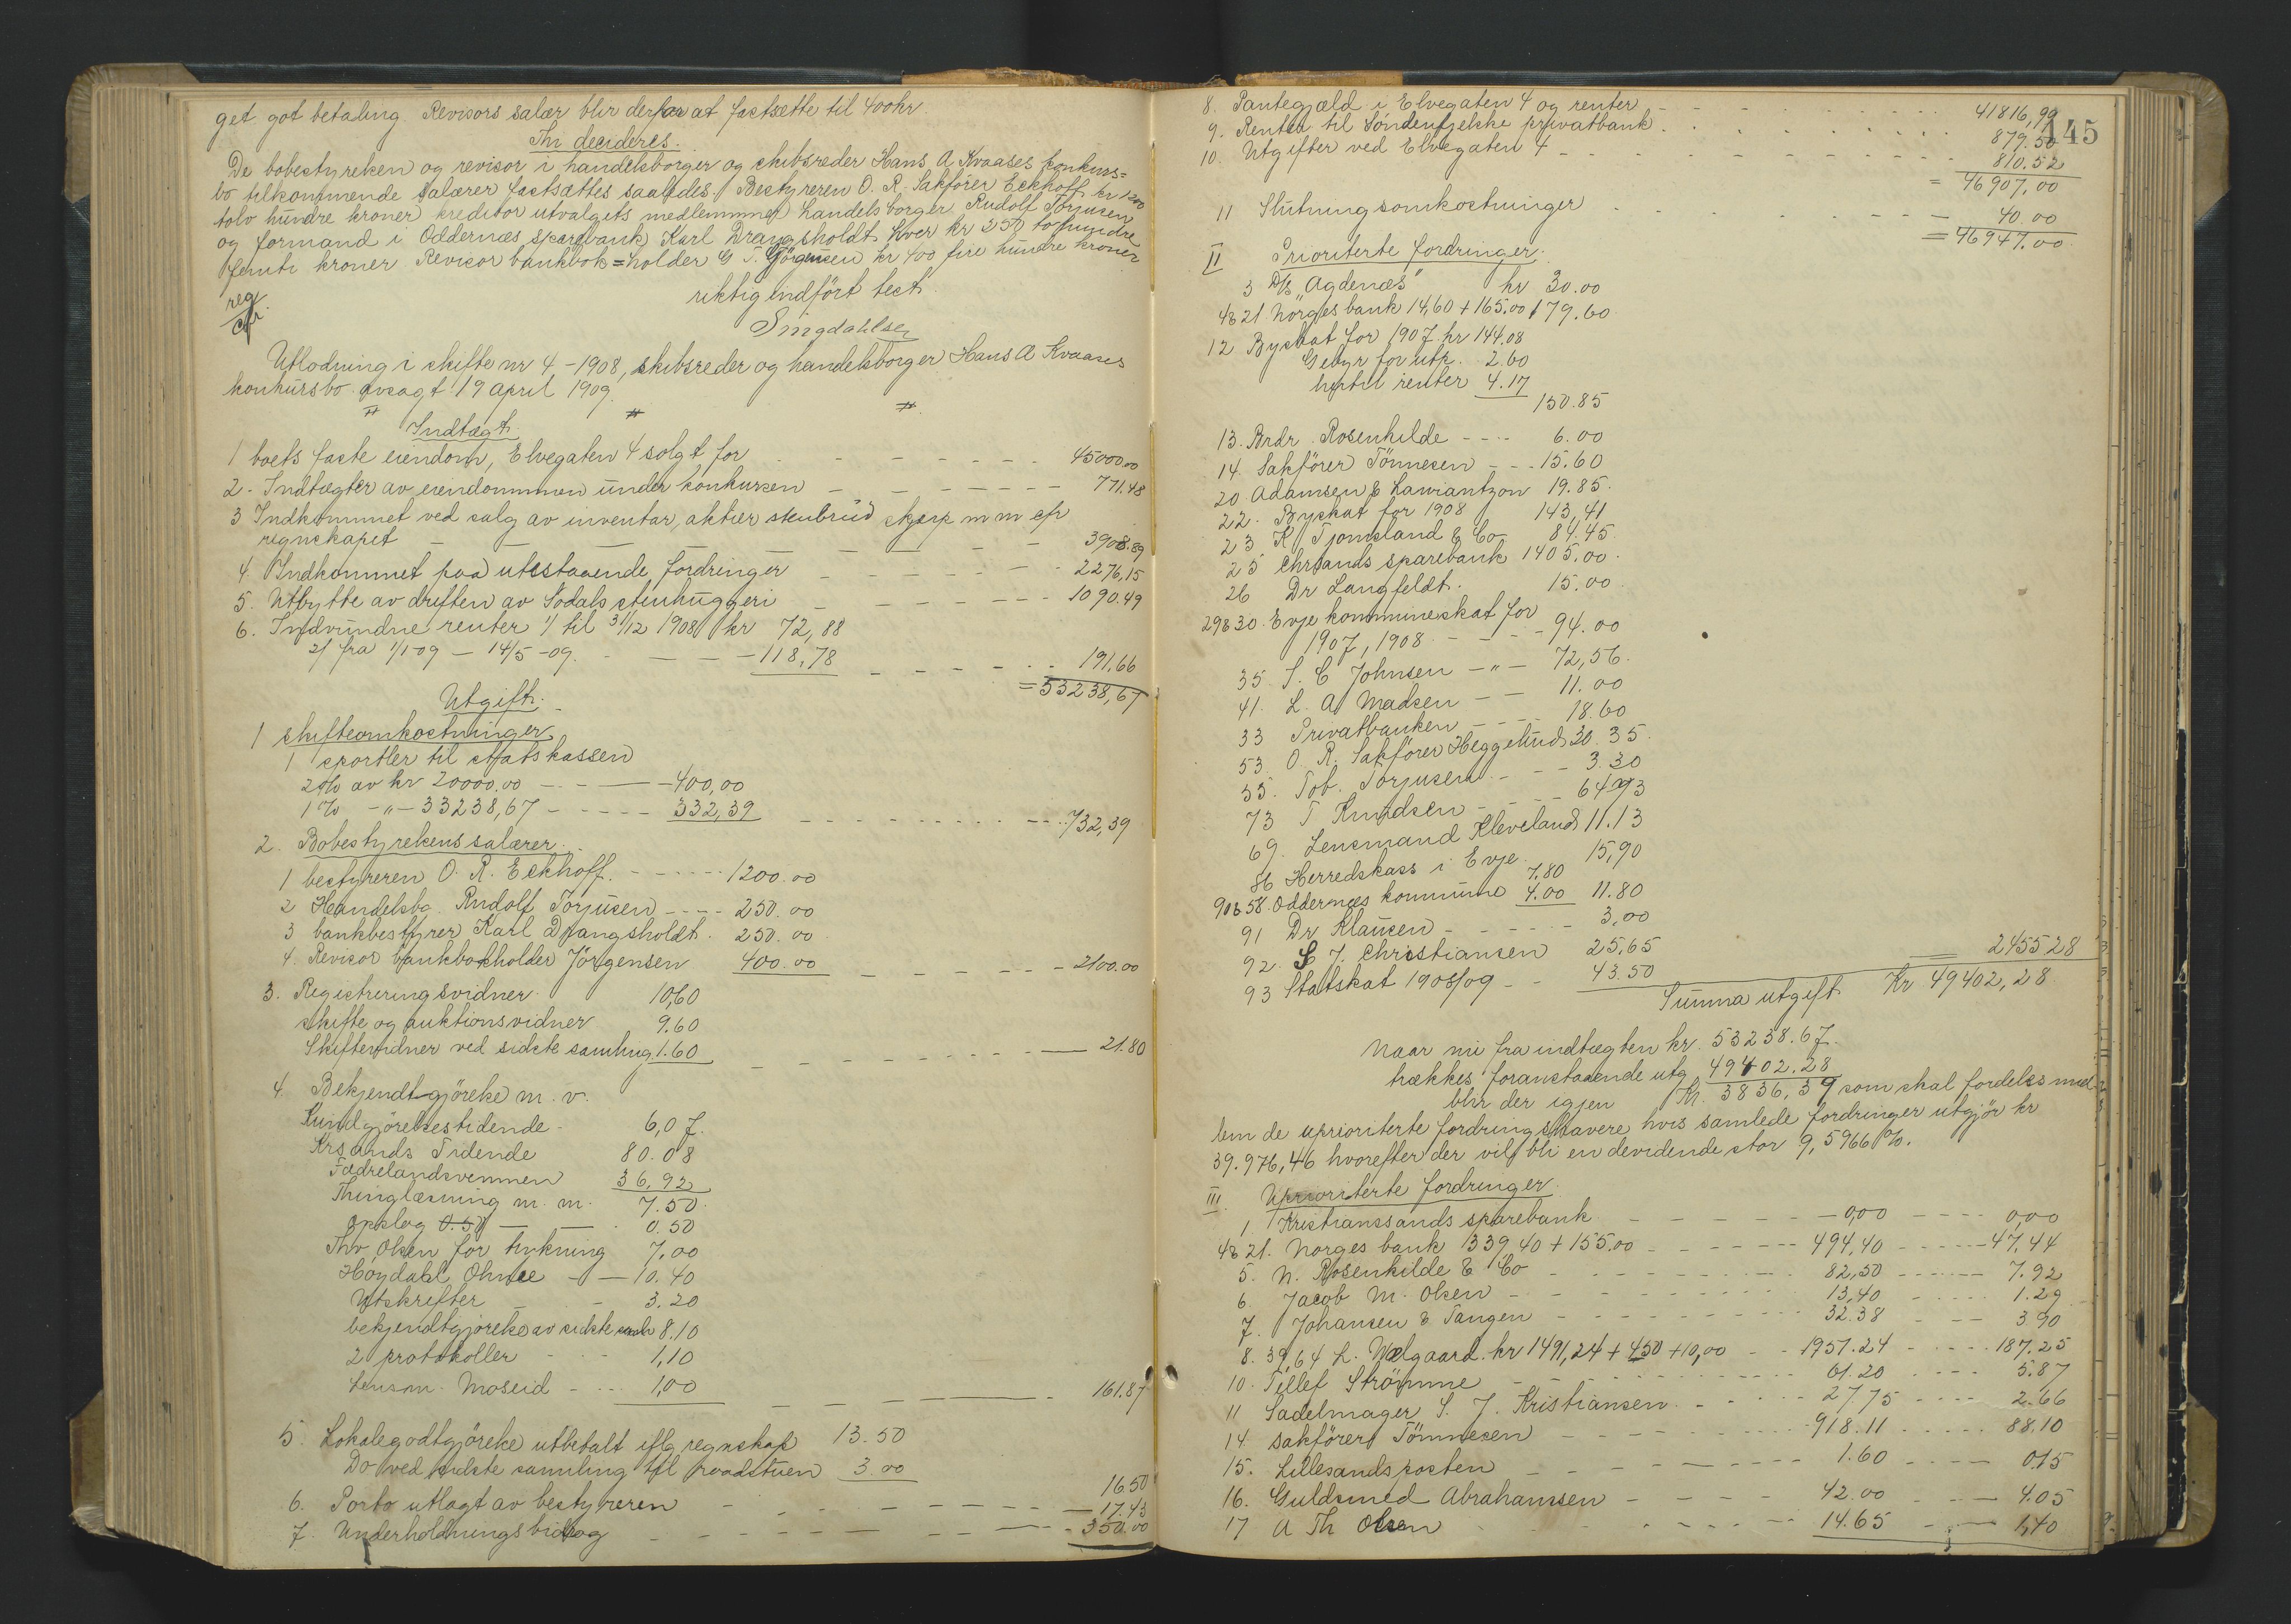 get got betaling. Revisors salær blir derfor at fastsætte til 400 kr.
Thi decideres.
De bobestyrelsen og revisor i handelsborger og skibsreder Hans A Kvaases konkurs=
bo tilkommende salærer fastsættes saaledes. Bestyreren O. R. Sakfører Eckhoff kr 1200
tolv hundre kroner) kreditor utvalgets medlemmer handelsborger Rudolf Torjusen
og formand i Oddernæs sparebank Karl Drangsholdt hver kr 250 tohundre
femti kroner Revisor bankbok=holder G T. Jörgensen kr 400 fire hundre kroner
riktig indfört test
reg
cfr.
Singdahlsen
Utlodning i skifte nr 4 - 1908, skibsreder og handelsborger Hans A Kvaases
konkursbo avsagt 19 april 1909.
Indtægt.
1 boets faste eiendom, Elvegaten 4 solgt for 45000.00
2. Indtægter av eiendommen under konkursen 771.48
3 Indkommet ved salg av inventar, aktier stenbrud skjerp m m efr
regnskapet 3908.89
4. Indkommet paa utestaaende fordringer 2276,15
5. Utbytte av driften av Södals stenhuggeri 1090.49
6. Indvundne renter 1/ til 31/12 1908 kr 72,88
2/ fra 1/1-09 - 14/5-09. 118,78 191.66
= 53238,67
Utgift.
1 skifteomkostninger
1 sportler til statskassen
2 % av kr 20000.00 400,00
1 % -"- 33238,67 332,39 732,39
2. Bobestyrelsens salærer.
1 bestyreren O. R. Eckhoff. 1200.00
2 Handelsbo. Rudolf Torjusen 250.00
3 bankbestyrer Karl Drangsholdt. 250.00
4. Revisor bankbokholder Jörgensen 400.00 2100.00
3. Registreringsvidner 10,60
skifte og auktionsvidner 9.60
Skiftevidner ved sidste samling 1.60 21.80
4. Bekjendtgjörelse m. v.
Kundgjörelsestidende 6,07.
Krsands Tidende 80.08
Fædrelandsvennen 36,92
Thinglæsning m. m. 7.50
opslag 0.50
Thv. Olsen for trykning 7.00
Höydahl Ohme 10.40
Utskrifter 3.20
bekjendtgjörelse av sidste saml 8.10
2 protokoller 1,10
Lensm. Moseid 1,00 161.87
5. Lokalegodtgjörelse utbetalt iflg regnskap 13.50
Do ved sidste samling til raadstuen 3.00 16.50
6. Porto utlagt av bestyreren 17.43
7. Underholdningsbidrag 350.00
145
8. Pantegjæld i Elvegaten 4 og renter 41816,99
9. Renter til Söndenfjelske privatbank. 879.50
10. Utgifter ved Elvegaten 4 810.52
= 46907,00
11 Slutningsomkostninger 40.00
= 46947.00.
II Prioriterte fordringer.
3 D/s „Agdenæs" kr 30.00
4&21 Norges bank 14,60 + 165.00 179.60
12 Byskat for 1907 kr 144.08
Gebyr for utp. 2.60
hertil renter 4.17
150.85
13. Brdr. Rosenkilde 6.00
14. Sakförer Tönnesen 15.60
20 Adamsen & Lawrantzon 19.85.
22. Byskat for 1908 143,41
23 K Tjomsland & Co 84.45
25 Chrsands sparebank 1405.00.
26 Dr Langfeldt. 15.00
29&30. Evje kommuneskat for
1907, 1908 94.00
35. S. C Johnsen -"- 72,56.
41. L. A Madsen 11.00
33 Privatbanken 18.60
53. O. R. Sakförer Heggelund 30.35.
55. Tob. Torjusen 3.30
73 T Knudsen 64.93
69. Lensmand Kleveland 11.13
86 Herredskass i Evje 15,90
7.80
90&58. Oddernæs kommune 4.00 11.80
91 Dr Klausen 3,00
92. S J. Christiansen 25,65
93 Statskat 1908/09 43.50 2455.28
Summa utgift Kr 49402,28
Naar nu fra indtægten kr. 53238.67.
trækkes foranstaaende utg. 49402.28
blir der igjen Kr. 3836,39 som skal fordeles mel=
lem de uprioriterte fordringshavere hvis samlede fordringer utgjör kr
39.976,46 hvorefter der vil bli en devidende stor 9,5966 %.
III. Uprioriterte fordringer.
1 Kristianssands sparebank 0,00 0,00
4&21. Norges bank 339,40 + 155.00 494,40 47,44
5. N. Rosenkilde & Co 82,50 7.92
6. Jacob M. Olsen 13,40 1.29
7. Johansen & Tangen 32.38 3.90
8. 39,64 L. Wælgaard. kr 1491,24 + 450 + 10,00 1951.24 187.25
10. Tellef Strömme 61.20 5.87
11 Sadelmager S. J. Kristiansen 27.75 2.66
14. sakförer Tönnesen 918.11 88.10
15. Lillesandsposten 1.60 0.15
16. Guldsmed Abrahamsen 42.00 4.05
17 A Th Olsen 14.65 1,40